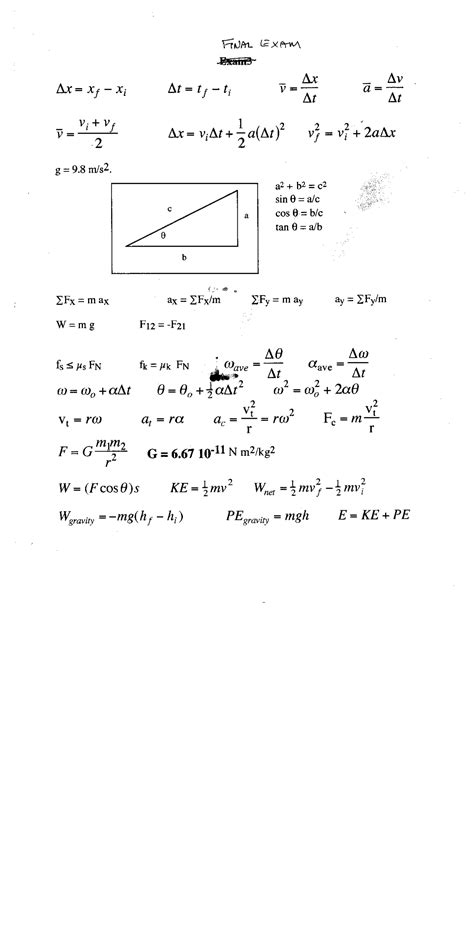 FINAL EXAM
Exam3
Δx = x_f − x_i Δt = t_f − t_i v̅ = Δx/Δt a̅ = Δv/Δt
v̅ = (v_i + v_f)/2 Δx = v_iΔt + 1/2 a(Δt)² v_f² = v_i² + 2aΔx
g = 9.8 m/s².
c a θ b
a² + b² = c²
sin θ = a/c
cos θ = b/c
tan θ = a/b
ΣFx = m ax ax = ΣFx/m ΣFy = m ay ay = ΣFy/m
W = m g F12 = -F21
fs ≤ μs FN fk = μk FN ω_ave = Δθ/Δt α_ave = Δω/Δt
ω = ω_o + αΔt θ = θ_o + ½αΔt² ω² = ω_o² + 2αθ
v_t = rω a_t = rα a_c = v_t²/r = rω² F_c = m v_t²/r
F = G m₁m₂/r² G = 6.67 10⁻¹¹ N m2/kg2
W = (F cos θ)s KE = ½mv² W_net = ½mv_f² − ½mv_i²
W_gravity = −mg(h_f − h_i) PE_gravity = mgh E = KE + PE